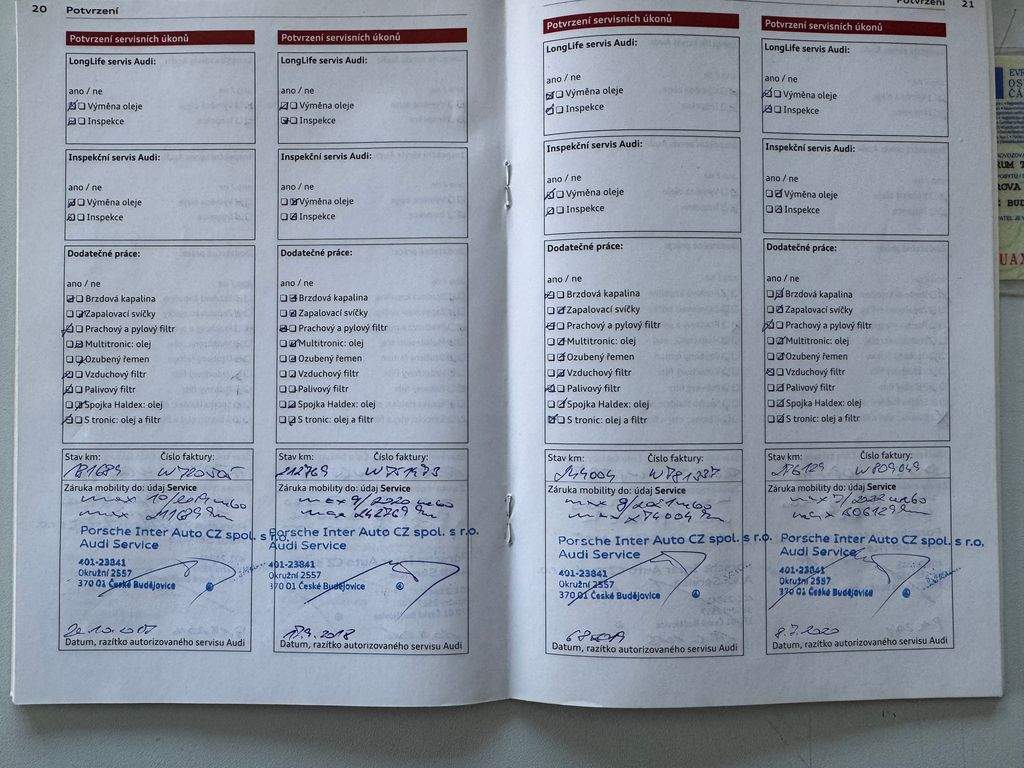 20 Potvrzení
Potvrzení servisních úkonů
LongLife servis Audi:
ano / ne
Výměna oleje
Inspekce
Inspekční servis Audi:
ano / ne
Výměna oleje
Inspekce
Dodatečné práce:
ano / ne
Brzdová kapalina
Zapalovací svíčky
Prachový a pylový filtr
Multitronic: olej
Ozubený řemen
Vzduchový filtr
Palivový filtr
Spojka Haldex: olej
S tronic: olej a filtr
Stav km: Číslo faktury:
181689 W720505
Záruka mobility do: údaj Service
max 10/2019 nebo
max 211689 km
Porsche Inter Auto CZ spol. s r.o.
Audi Service
401-23841
Okružní 2557
370 01 České Budějovice
20.10.2017
Datum, razítko autorizovaného servisu Audi
Potvrzení servisních úkonů
LongLife servis Audi:
ano / ne
Výměna oleje
Inspekce
Inspekční servis Audi:
ano / ne
Výměna oleje
Inspekce
Dodatečné práce:
ano / ne
Brzdová kapalina
Zapalovací svíčky
Prachový a pylový filtr
Multitronic: olej
Ozubený řemen
Vzduchový filtr
Palivový filtr
Spojka Haldex: olej
S tronic: olej a filtr
Stav km: Číslo faktury:
212769
Záruka mobility do: údaj Service
max 9/2020 nebo
max 242769 km
Porsche Inter Auto CZ spol. s r.o.
Audi Service
401-23841
Okružní 2557
370 01 České Budějovice
17.9.2018
Datum, razítko autorizovaného servisu Audi
Potvrzení 21
Potvrzení servisních úkonů
LongLife servis Audi:
ano / ne
Výměna oleje
Inspekce
Inspekční servis Audi:
ano / ne
Výměna oleje
Inspekce
Dodatečné práce:
ano / ne
Brzdová kapalina
Zapalovací svíčky
Prachový a pylový filtr
Multitronic: olej
Ozubený řemen
Vzduchový filtr
Palivový filtr
Spojka Haldex: olej
S tronic: olej a filtr
Stav km: Číslo faktury:
244004 W781337
Záruka mobility do: údaj Service
max 8/2021 nebo
max 274004 km
Porsche Inter Auto CZ spol. s r.o.
Audi Service
401-23841
Okružní 2557
370 01 České Budějovice
Datum, razítko autorizovaného servisu Audi
Potvrzení servisních úkonů
LongLife servis Audi:
ano / ne
Výměna oleje
Inspekce
Inspekční servis Audi:
ano / ne
Výměna oleje
Inspekce
Dodatečné práce:
ano / ne
Brzdová kapalina
Zapalovací svíčky
Prachový a pylový filtr
Multitronic: olej
Ozubený řemen
Vzduchový filtr
Palivový filtr
Spojka Haldex: olej
S tronic: olej a filtr
Stav km: Číslo faktury:
276129 W809049
Záruka mobility do: údaj Service
max 7/2022 nebo
max 306129 km
Porsche Inter Auto CZ spol. s r.o.
Audi Service
401-23841
Okružní 2557
370 01 České Budějovice
8.7.2020
Datum, razítko autorizovaného servisu Audi